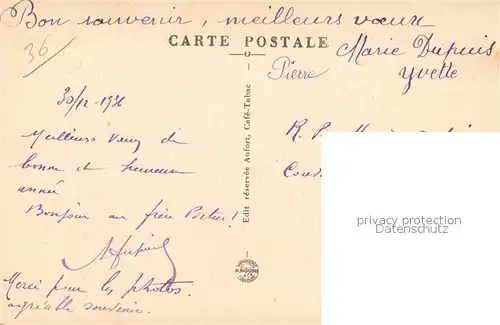 Bon souvenir, meilleurs vœux
CARTE POSTALE
36
Marie Dupuis
Pierre
Yvette
30/12-1936
Meilleurs vœux de
bonne et heureuse
année
Bonjour au frère !
Merci pour les photos.
agréable souvenir.
Edit. réservée Aufort, Café-Tabac
R. P.
privacy protection
Datenschutz